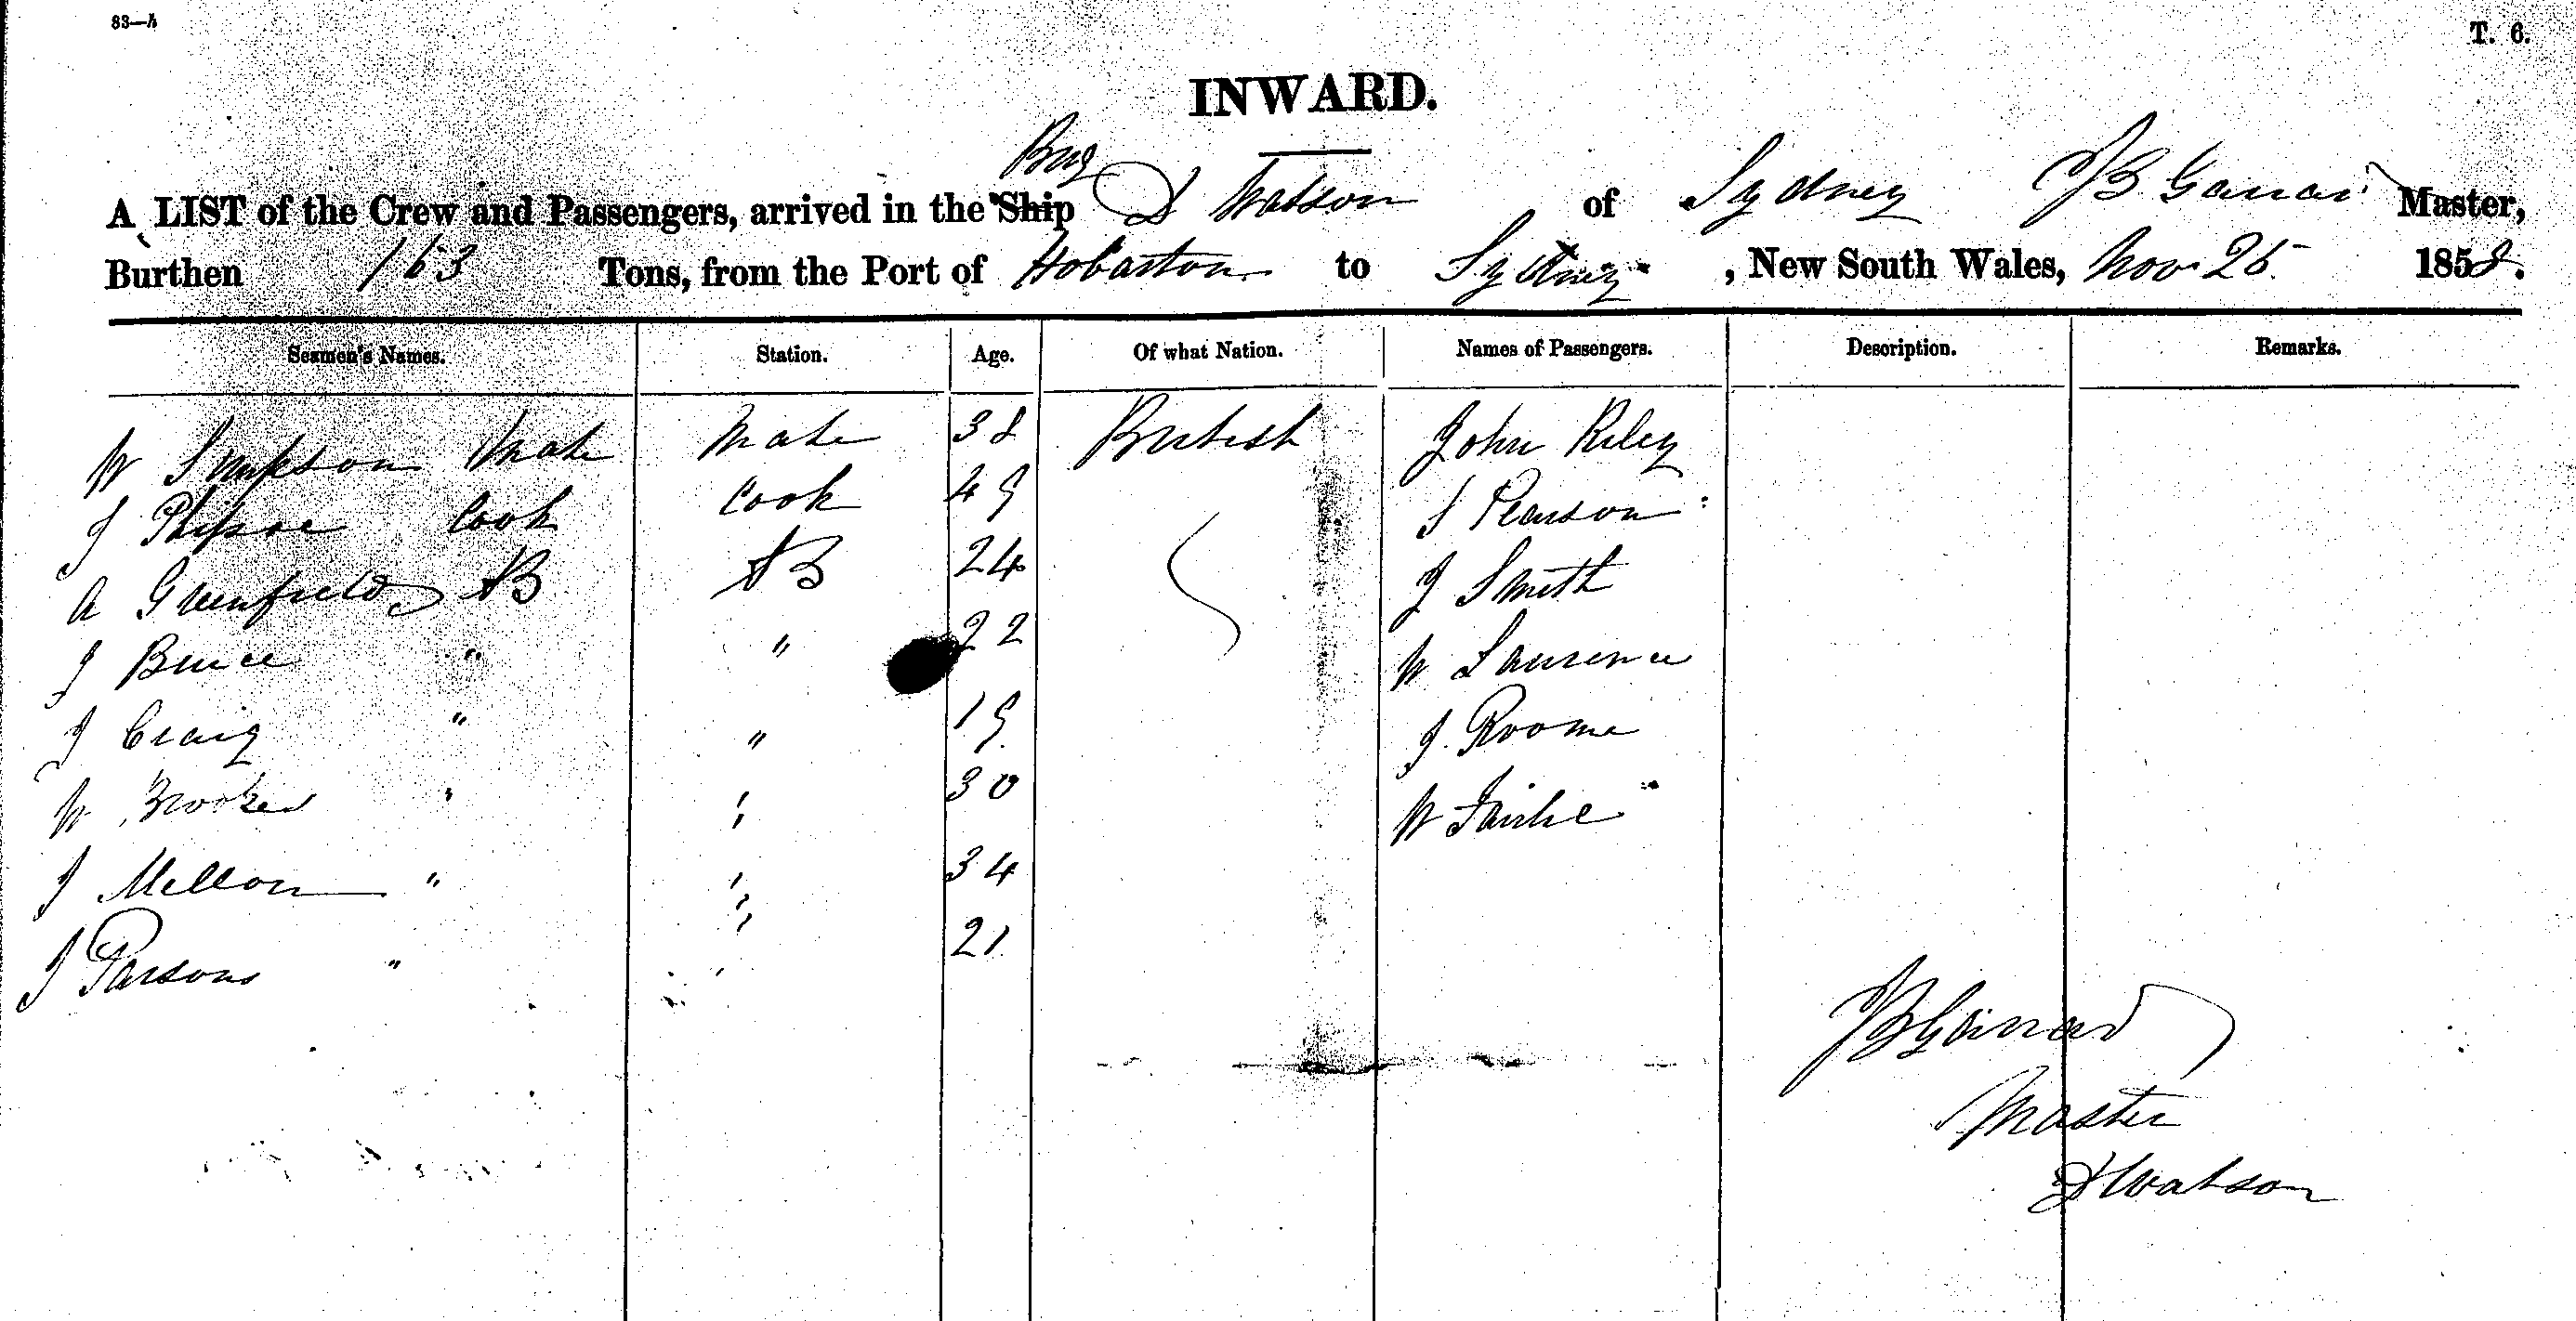 83—h
T. 6.
INWARD.
Brig
A LIST of the Crew and Passengers, arrived in the Ship D Watson of Sydney J B Master,
Burthen 163 Tons, from the Port of Hobarton to Sydney, New South Wales, Nov 25 1858.
Seamen's Names. Station. Age. Of what Nation. Names of Passengers. Description. Remarks.
W Simpson Mate Mate 38 British John Riley
J Cook Cook 49 S Pearson
A Greenfield AB AB 24 J Smith
J Bruce " " 22 W Laurence
J Craig " " 19 J. Roome
W Brookes " " 30 W
J Mellon " " 34
J Parsons " " 21
J B
Master
D Watson